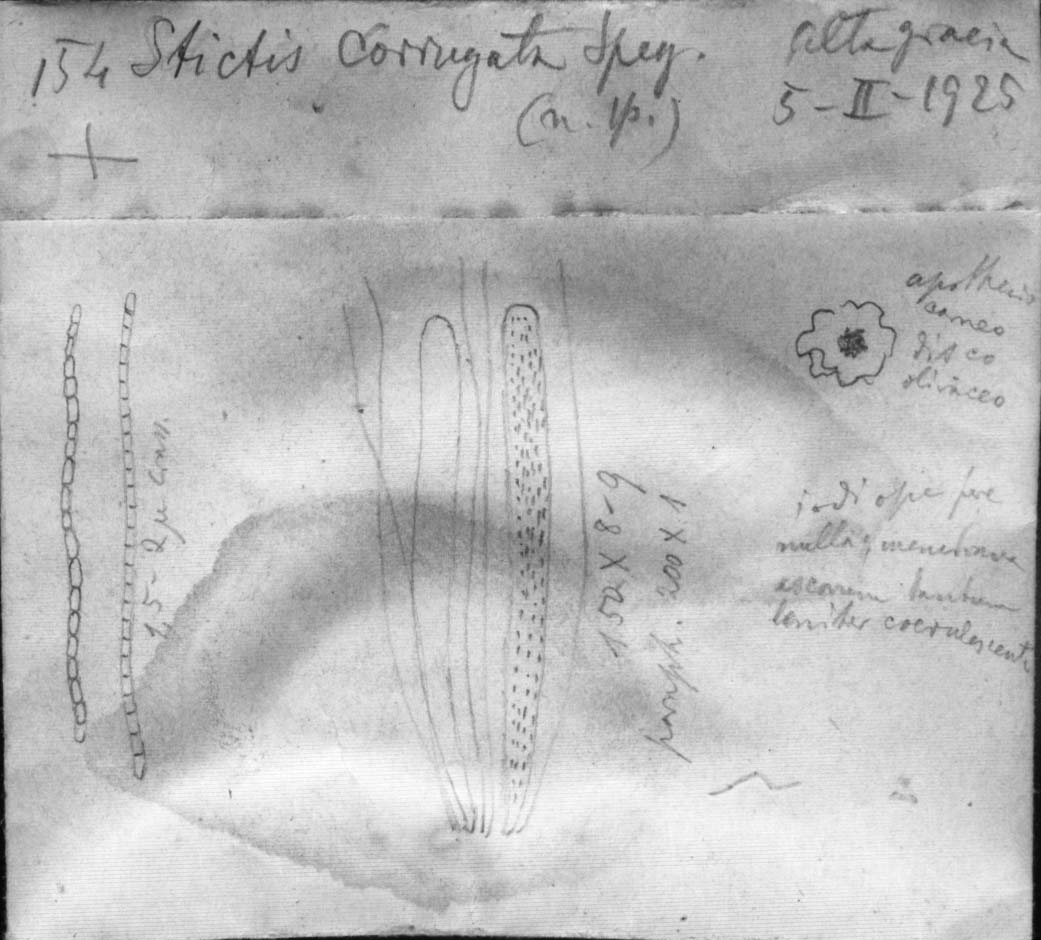 154 Stictis corrugata Speg. Alta gracia
(n. sp.) 5-II-1925
apothecio
carneo
disco
olivaceo
1,5-2µ crass.
150 X 8-9
paraph. 200 X 1
iodi ope fere
nulla, membrana
ascorum tantum
leniter coerulescente